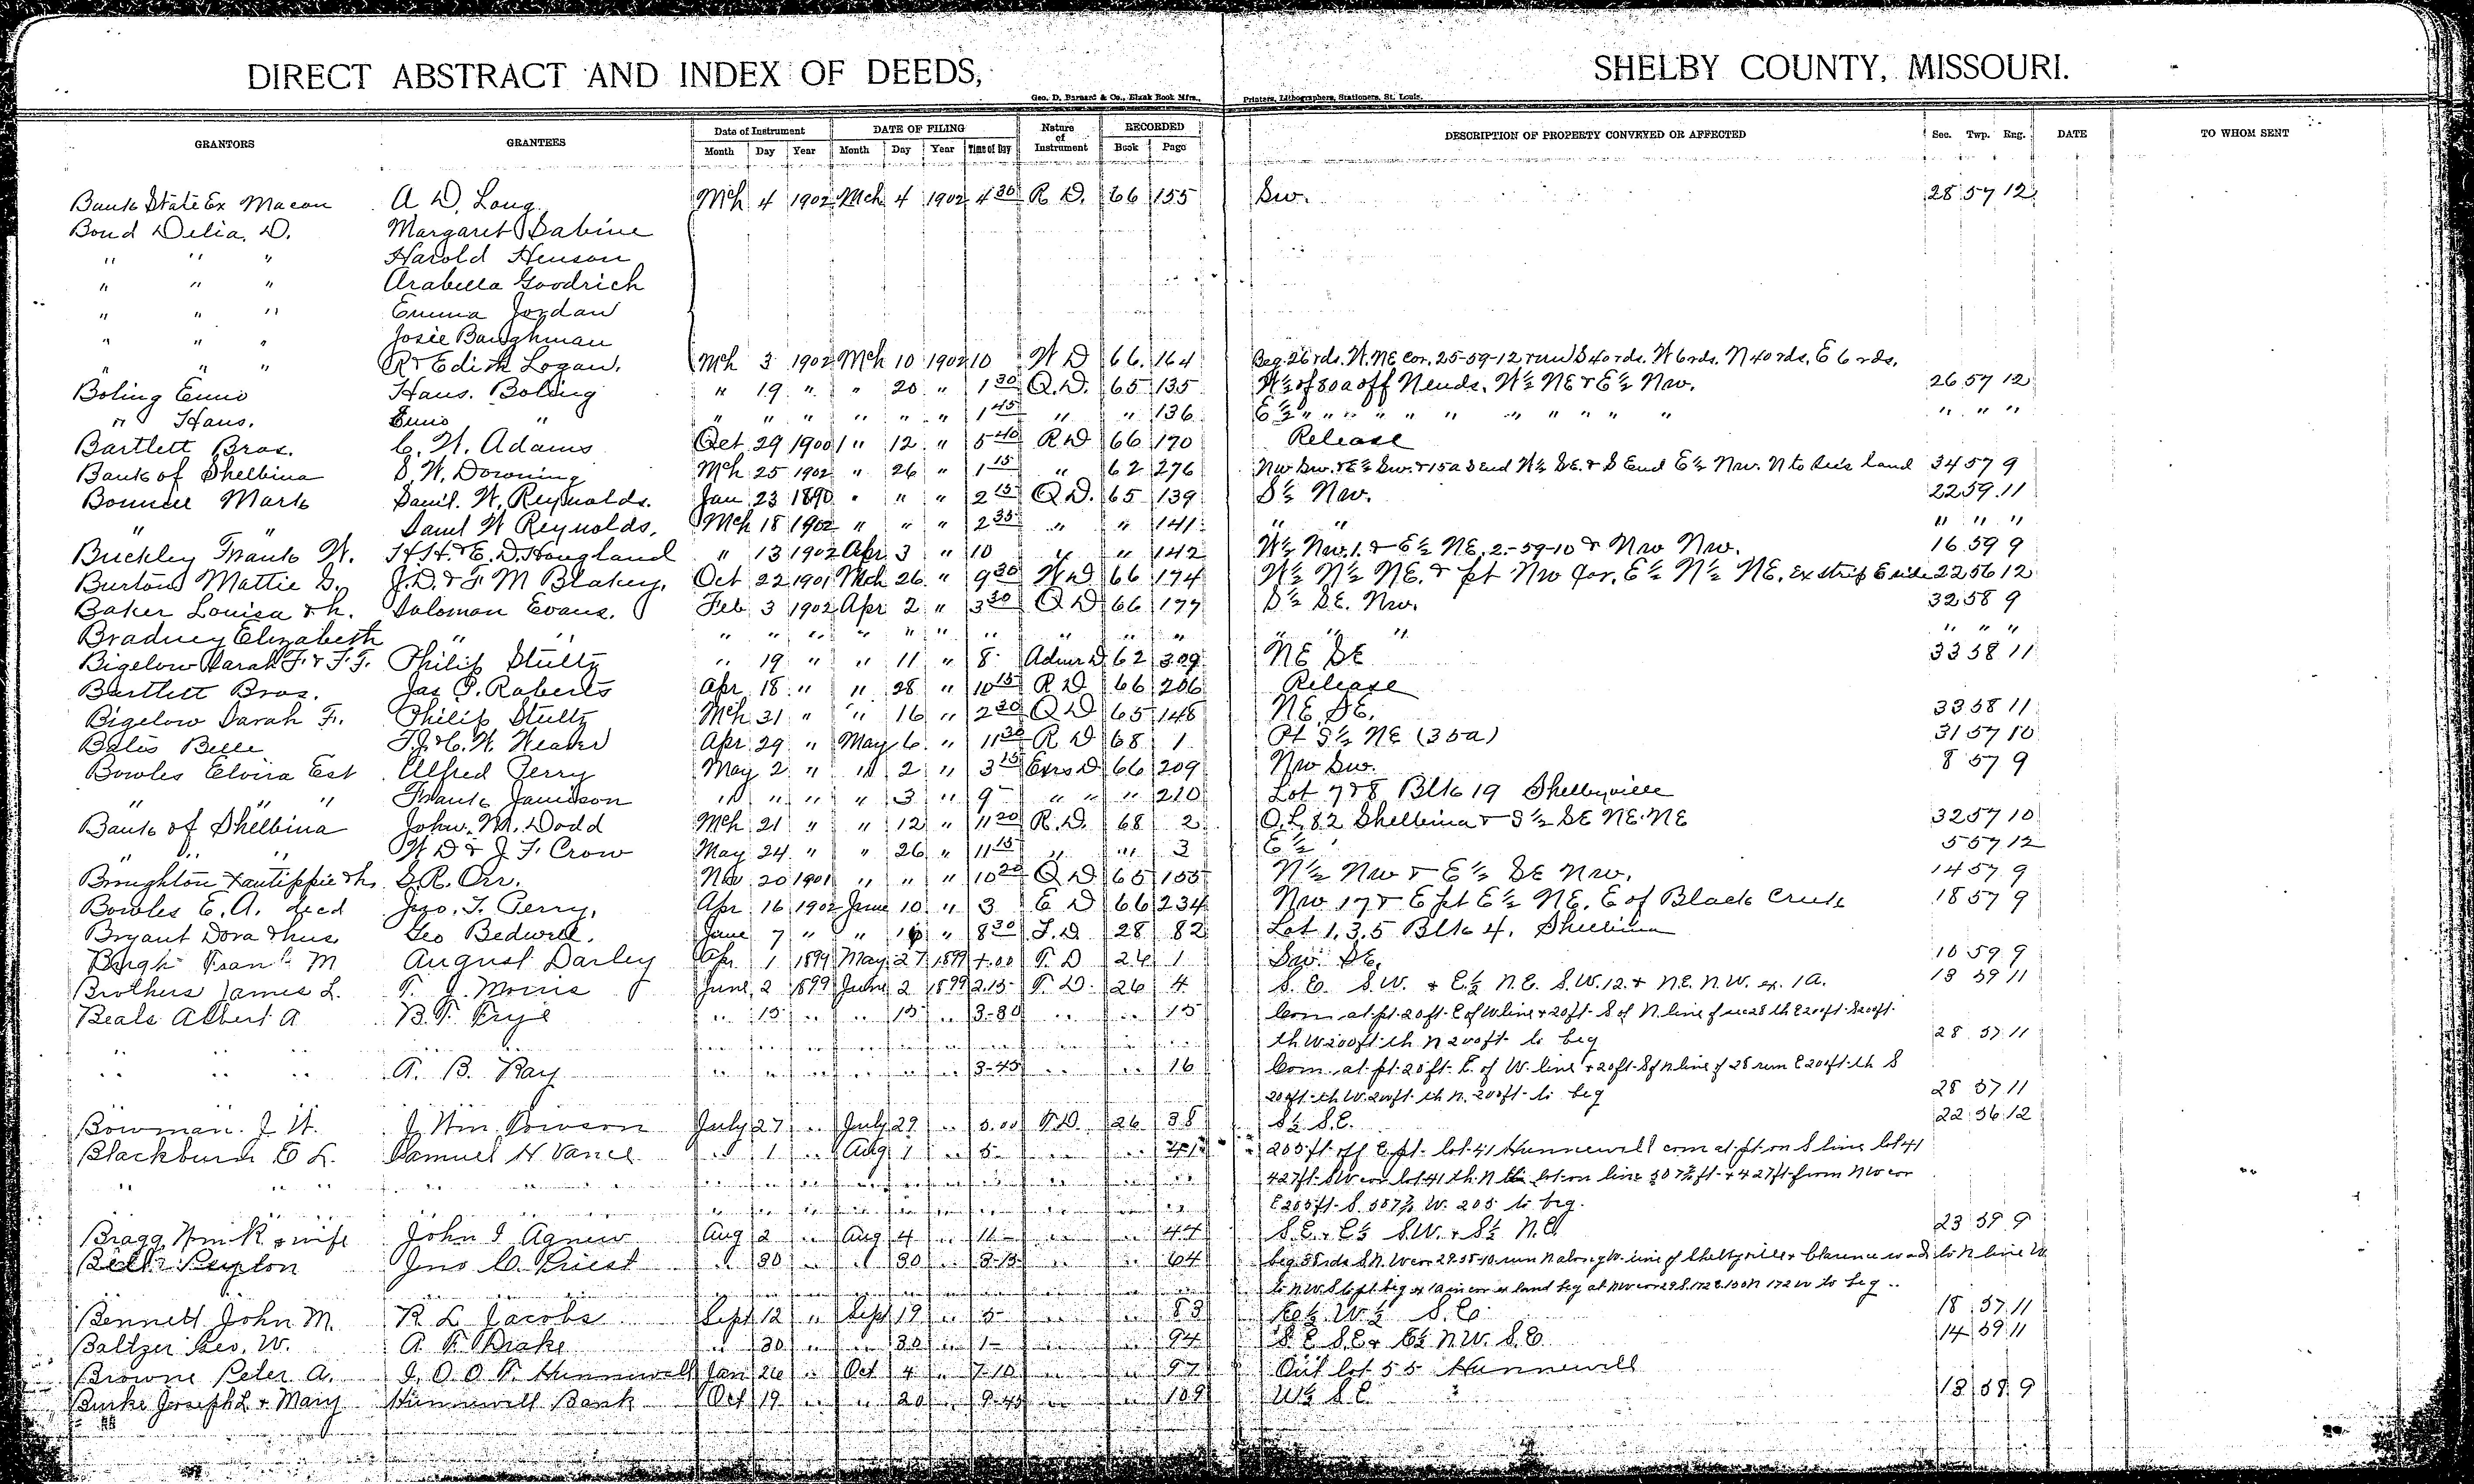 DIRECT ABSTRACT AND INDEX OF DEEDS, SHELBY COUNTY, MISSOURI.
Geo. D. Barnard & Co., Blank Book Mfrs., Printers, Lithographers, Stationers, St. Louis.
GRANTORS GRANTEES Date of Instrument DATE OF FILING Nature of Instrument RECORDED DESCRIPTION OF PROPERTY CONVEYED OR AFFECTED Sec. Twp. Rng. DATE TO WHOM SENT
Month Day Year Month Day Year Time of Day Book Page
Bank State Ex Macon A D. Long Mch 4 1902 Mch 4 1902 4 30 R D. 66 155 Sw. 28 57 12
Bond Delia. D. Margaret Sabine
" " " Harold Henson
" " " Arabella Goodrich
" " " Emma Jordan
" " " Josie Baughman
" " " R & Edith Logan. Mch 3 1902 Mch 10 1902 10 W D 66. 164 Beg. 26 rds. W. NE Cor. 25-59-12 run S 40 rds. W 6 rds. N 40 rds. E 6 rds.
Boling Enno Hans. Boling " 19 " " 20 " 1 30 Q. D. 65 135 W½ of 80a off N ends. W½ NE & E½ Nw. 26 57 12
" Hans. Enno " " " " " " " 1 45 " " 136 E½ " " " " " " " " " " " " " "
Bartlett Bros. C. W. Adams Oct 29 1900 " 12 " 5 40 R D 66 170 Release
Bank of Shelbina S. W. Downing Mch 25 1902 " 26 " 1 15 " 62 276 Nw Sw. & E½ Sw. & 15a S end W½ SE. & S End E½ Nw. N to land 34 57 9
Bonnell Mark Saml. W. Reynolds. Jan 23 1890 " " " 2 15 Q D. 65 139 S½ Nw. 22 59 11
" " Saml W Reynolds. Mch 18 1902 " " " 2 35 " " 141 " " " " "
Buckley Frank W. H. H. & E. D. Hougland " 13 1902 Apr 3 " 10 " " 142 W½ Nw. 1. & E½ NE. 2-59-10 & Nw Nw. 16 59 9
Burton Mattie G. J. D. & F. M Blakey. Oct 22 1901 Mch 26 " 9 30 W D 66 194 W½ N½ NE. & pt Nw Cor. E½ N½ NE. Ex strip E side 22 56 12
Baker Louisa & h. Soloman Evans. Feb 3 1902 Apr 2 " 3 30 Q D 66 177 S½ SE. Nw. 32 58 9
Bradney Elizabeth " " " " " " " " " " " " " " " " " "
Bigelow Sarah F. & F. F. Philip Stultz " 19 " " 11 " 8 Admr D 62 309 NE SE 33 58 11
Bartlett Bros. Jas P. Roberts Apr 18 " " 28 " 10 15 R D 66 206 Release
Bigelow Sarah F. Philip Stultz Mch 31 " " 16 " 2 30 Q D 65 148 NE. SE. 33 58 11
Bates Belle F. J. & C. W. Weaver Apr 29 " May 6 " 11 30 R D 68 1 Pt S½ NE (35a) 31 57 10
Bowles Elvira Est Alfred Perry May 2 " " 2 " 3 15 Exrs D 66 209 Nw Sw. 8 57 9
" " " Frank Jamison " " " " 3 " 9 " " " 210 Lot 7 & 8 Blk 19 Shelbyville
Bank of Shelbina John. M. Dodd Mch 21 " " 12 " 11 20 R. D. 68 2 O. L. 82 Shelbina & S½ SE NE. NE 32 57 10
" " " W D & J F. Crow May 24 " " 26 " 11 15 " " 3 E½ 5 57 12
Broughton Xantippie & h. S. R. Orr. Nov 20 1901 " " " 10 20 Q D 65 155 N½ Nw & E½ SE Nw. 14 57 9
Bowles E. A. decd Jno. T. Perry. Apr 16 1902 June 10 " 3 E D 66 234 Nw 17 & E pt E½ NE. E of Black Creek 18 57 9
Bryant Dora & hus Geo Bedwell. June 7 " " " 8 30 T. D. 28 82 Lot 1. 3. 5 Blk 4. Shelbina
Frank M August Darley Apr 1 1899 May 27 1899 4.00 T. D 26 1 Sw. SE. 10 59 9
Brothers James L. T. J. Morris June 2 1899 June 2 1899 2.15 T. D. 26 4 S. E. S.W. & E.½ N.E. S.W. 12. & N.E. N.W. ex. 1 A. 13 59 11
Beals Albert A B. F. Frye " 15 " " 15 " 3-30 " " 15 Com at pt. 20 ft. E of W line & 20 ft. S of N. line of sec 28 th E 200 ft. S 200 ft.
" " " " " " " " " " " " " th W 200 ft. th N 200 ft. to beg 28 57 11
" " " A. B. Ray " " " " " " 3-45 " " 16 Com at pt. 20 ft. E. of W. line & 20 ft. S of N line of 28 run E 200 ft. th S
200 ft. th W. 200 ft. th N. 200 ft. to beg 28 57 11
Bowman. J. W. J. Wm. July 27 " July 29 " 5.00 T. D. 26 38 S½ S.E. 22 56 12
Blackburn E L. Samuel H Vance " 1 " Aug 1 " 5- " " 41 205 ft. off E. pt. lot 41 Hunnewell com at pt. on S line lot 41
" " " " " " " " " " " " " 427 ft. SW cor lot 41 th. N lot on line 307½ ft. & 427 ft from NW cor
" " " " " " " " " " " " " E 205 ft. S. 507½ W. 205 to beg.
Bragg Wm R & wife John I Agnew Aug 2 " Aug 4 " 11- " " 44 S.E. & E½ S.W. & S½ N.E. 23 59 9
Peyton Jno C. Priest " 30 " " 30 " 3-15 " " 64 beg. 38 rds S. N. W cor 29-58-10 run N along W. line of Shelbyville & Clarence road to N line W.
Bennett John M. R L Jacobs Sept 12 " Sept 19 " 5- " " 83 E½ W½ S. E. 18 57 11
Baltzer Geo. W. A. F. Drake " 30 " " 30 " 1- " " 94 S. E S.E. & E½ N W. S.E. 14 59 11
Browne Peter A. I. O O F. Hunnewell Jan 26 " Oct 4 " 7-10 " " 97 Out lot 55 Hunnewell
Burke Joseph L & Mary Hunnewell Bank Oct 19 " " 20 " 9-45 " " 109 W½ S.E. 13 58 9